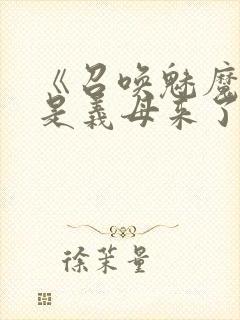 《召唤魅魔
是义母来了
徐茉量